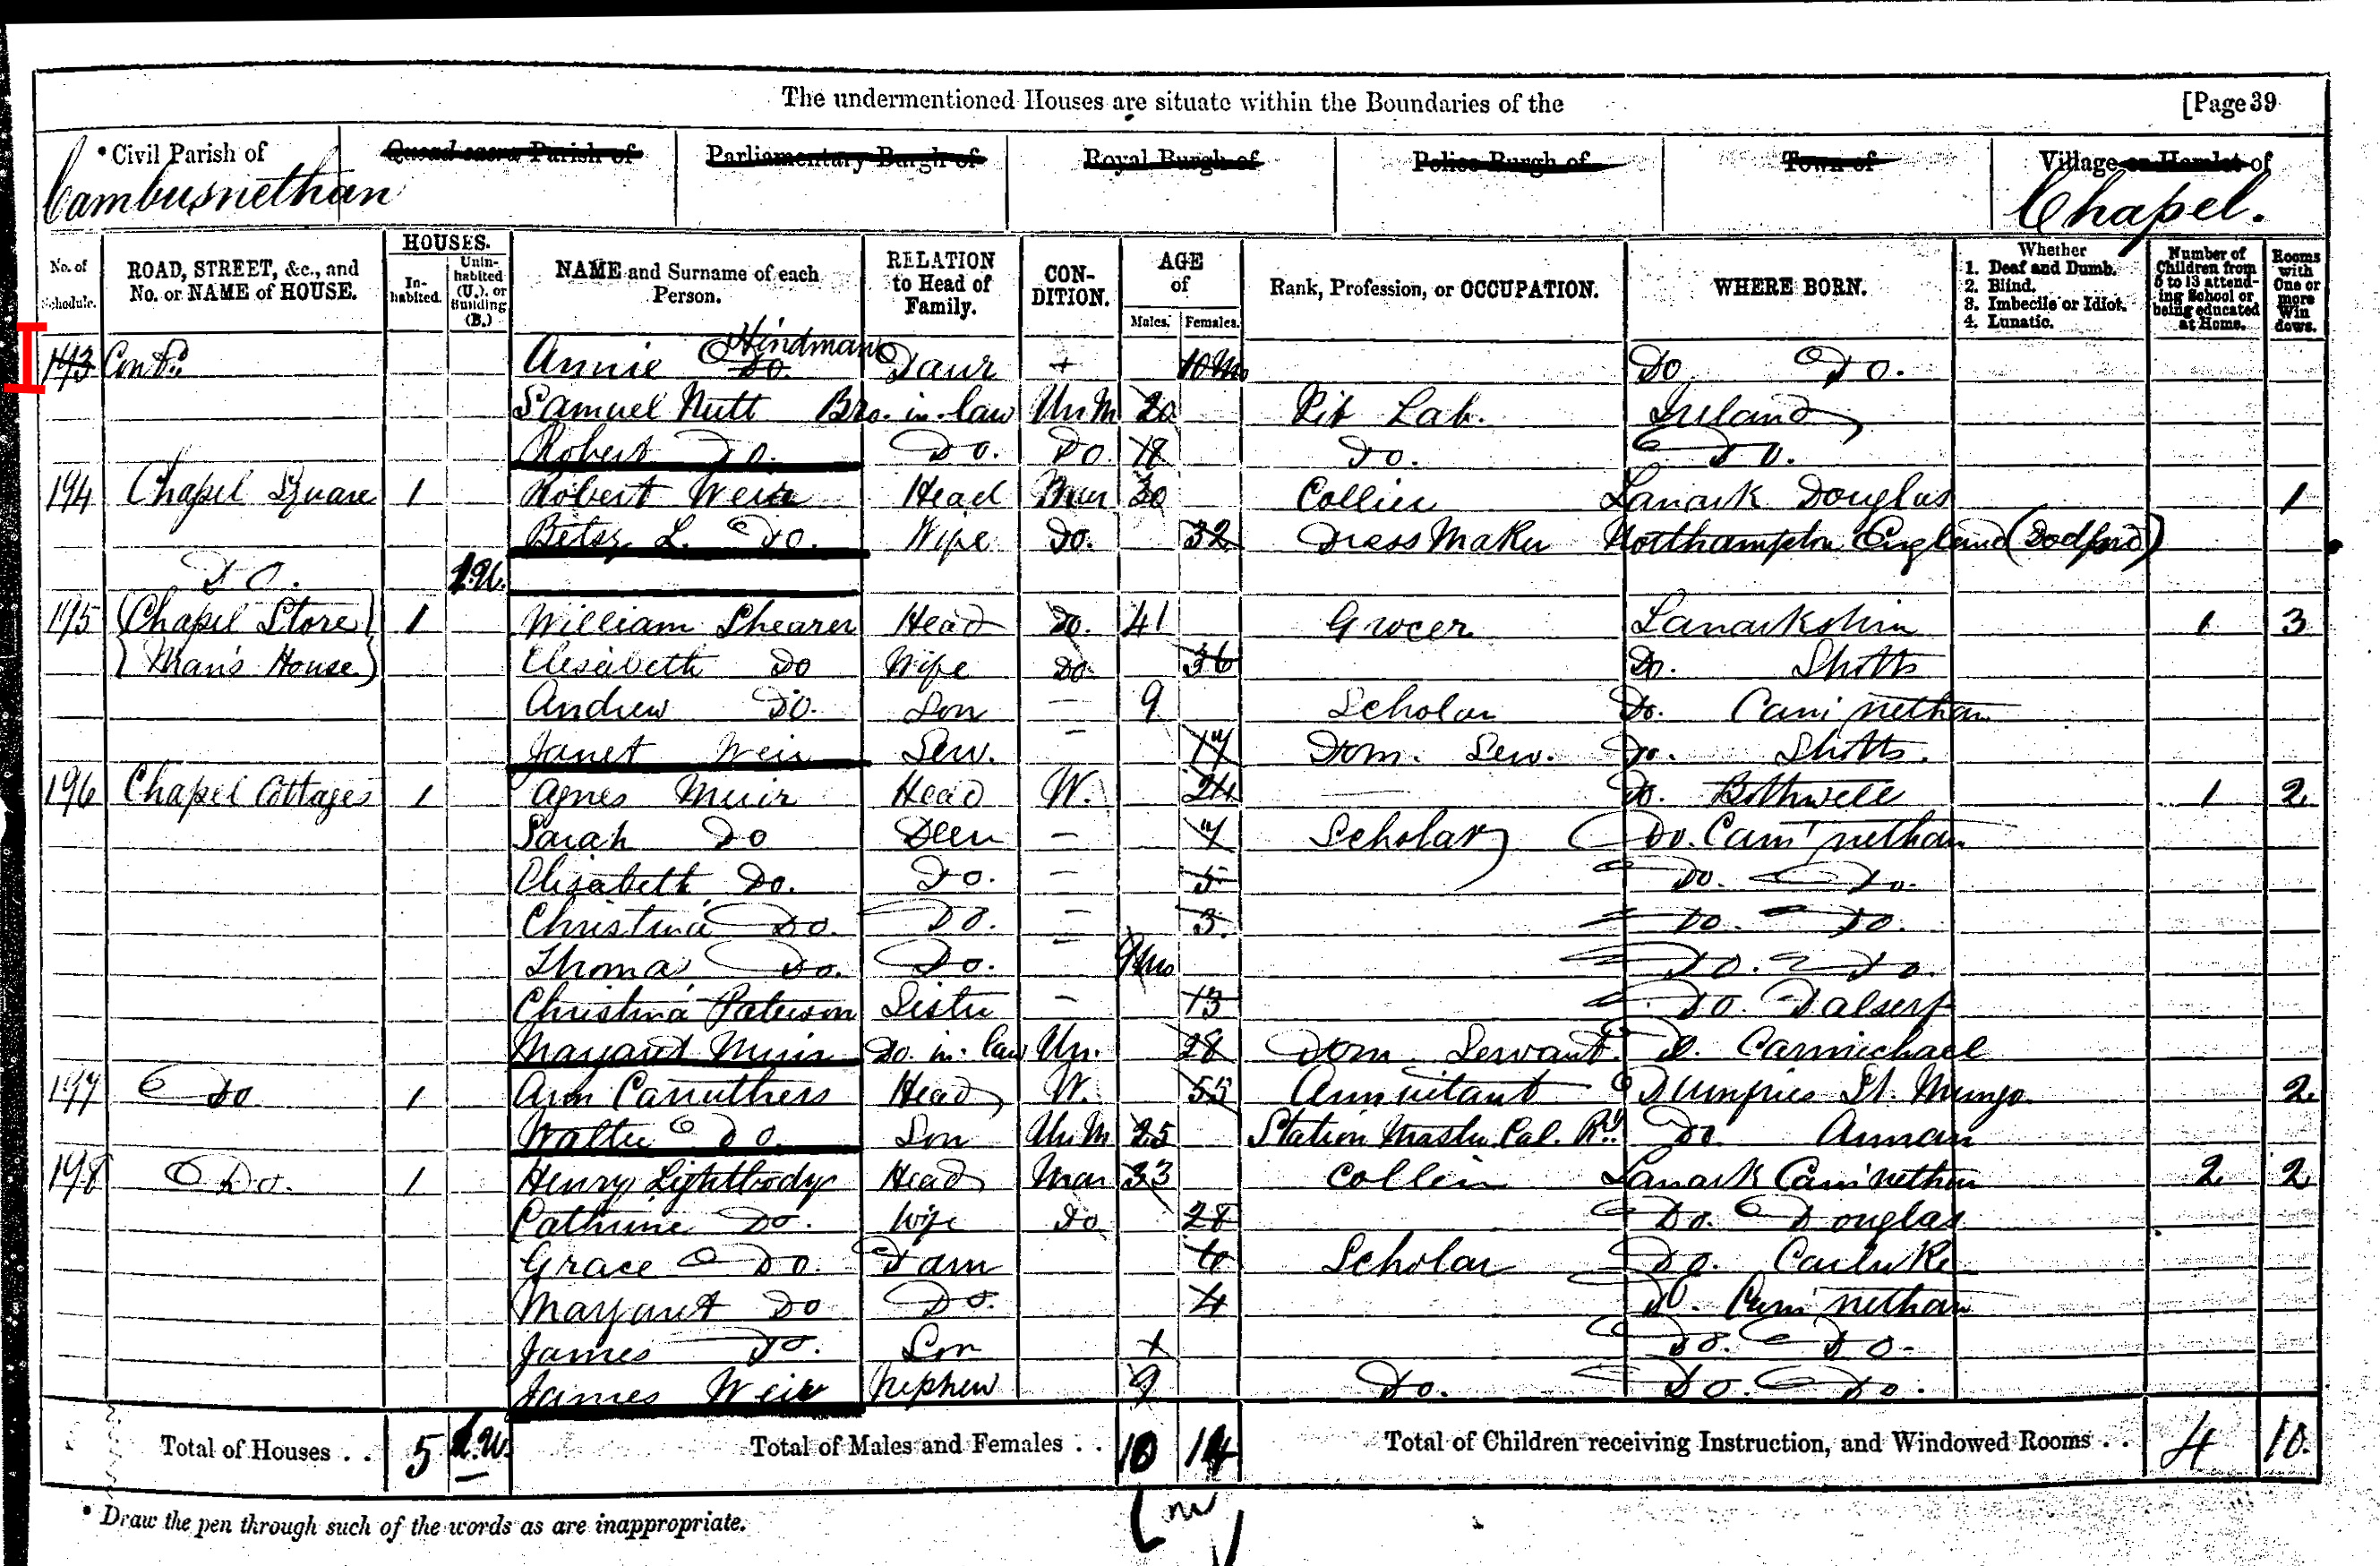 The undermentioned Houses are situate within the Boundaries of the [Page 39
* Civil Parish of Quoad sacra Parish of Parliamentary Burgh of Royal Burgh of Police Burgh of Town of Village or Hamlet of
Cambusnethan Chapel.
No. of Schedule. ROAD, STREET, &c., and No. or NAME of HOUSE. HOUSES. In-habited. Unin-habited (U.), or Building (B.) NAME and Surname of each Person. RELATION to Head of Family. CON-DITION. AGE of Males. Females. Rank, Profession, or OCCUPATION. WHERE BORN. Whether 1. Deaf and Dumb. 2. Blind. 3. Imbecile or Idiot. 4. Lunatic. Number of Children from 5 to 13 attend-ing School or being educated at Home. Rooms with One or more Win dows.
Hindman
193 Contd. Annie Do. Daur + 10 Mo Do Do.
Samuel Nutt Bro. in. law Un M 20 Pit Lab. Ireland
Robert Do. Do. Do. 18 Do. Do.
194 Chapel Square 1 Robert Weir Head Mar 30 Collier Lanark Douglas 1
Betsy L. Do. Wife Do. 32 Dress Maker Northampton England (Dodford)
Do. 1.U.
195 (Chapel Store) 1 William Shearer Head Do. 41 Grocer Lanarkshire 1 3
(Man's House) Elisabeth Do Wife Do. 36 Do. Shotts
Andrew Do. Son — 9 Scholar Do. Cam'nethan
Janet Weir Serv. — 17 Dom. Serv. Do. Shotts.
196 Chapel Cottages 1 Agnes Muir Head W. 24 Do. Bothwell 1 2
Sarah Do — 7 Scholar Do. Cam'nethan
Elisabeth Do. Do. — 5 Do. Do.
Christina Do. Do. — 3 Do. Do.
Thomas Do. Do. — 9 Mo Do. Do.
Christina Paterson Sister — 13 Do. Dalserf
Margaret Muir Do. in. law Un. 28 Dom. Servant Do. Carmichael
197 Do 1 Ann Carruthers Head W. 55 Annuitant Dumfries St. Mungo 2
Walter Do. Son Un M 25 Station Master Cal. Ry. Do. Annan
198 Do. 1 Henry Lightbody Head Mar 33 Collier Lanark Cam'nethan 2 2
Cathrine Do. Wife Do 28 Do. Douglas
Grace Do. Daur 6 Scholar Do. Carluke
Margaret Do Do. 4 Do. Cam'nethan
James Do. Son Do. Do.
James Weir Nephew 9 Do. Do. Do.
Total of Houses . . 5 1.U. Total of Males and Females . . 10 14 Total of Children receiving Instruction, and Windowed Rooms . . 4 10.
* Draw the pen through such of the words as are inappropriate.